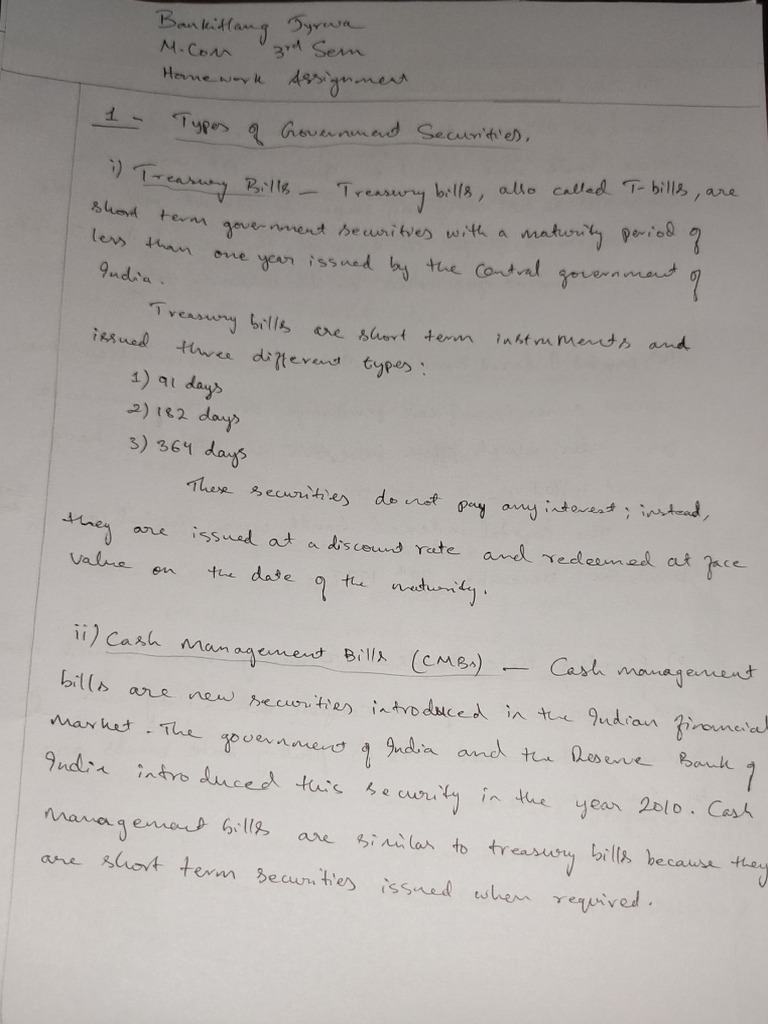 Bankitlang Jyrwa
M.Com 3rd Sem
Homework Assignment
1 - Types of Government Securities.
i) Treasury Bills — Treasury bills, also called T-bills, are
short term government securities with a maturity period of
less than one year issued by the central government of
India.
Treasury bills are short term instruments and
issued three different types:
1) 91 days
2) 182 days
3) 364 days
These securities do not pay any interest; instead,
they are issued at a discount rate and redeemed at face
value on the date of the maturity.
ii) Cash Management Bills (CMBs) — Cash management
bills are new securities introduced in the Indian financial
market. The government of India and the Reserve Bank of
India introduced this security in the year 2010. Cash
management bills are similar to treasury bills because they
are short term securities issued when required.